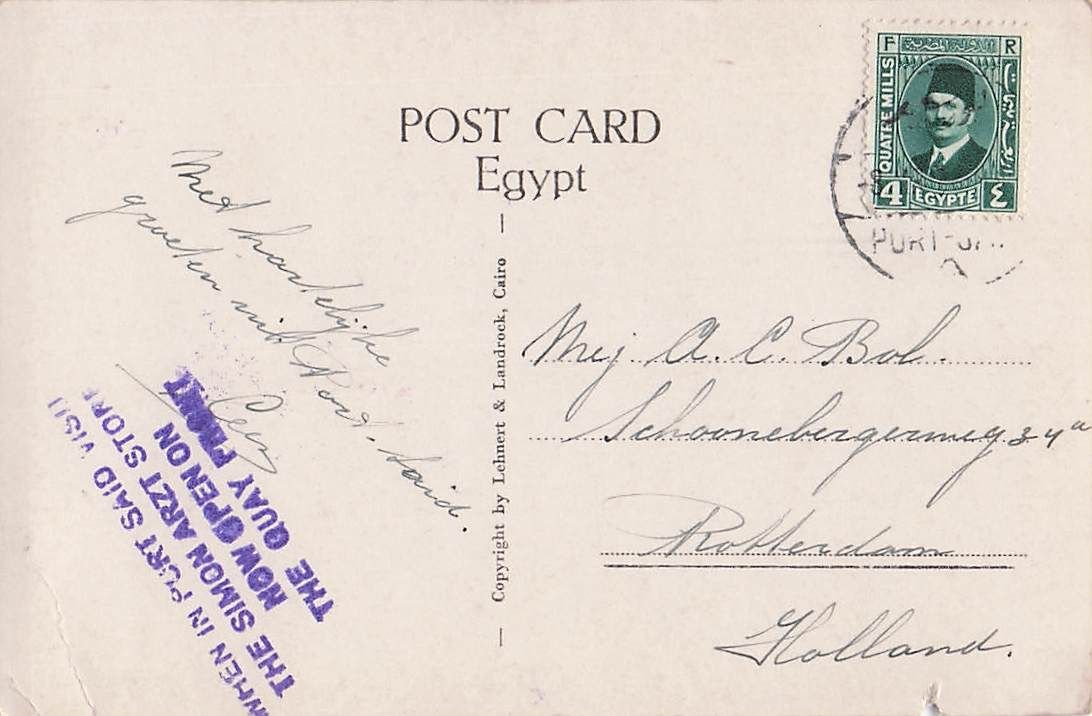 POST CARD
Egypt
F R
QUATRE MILLS
الدولة المصرية
4 EGYPTE ٤
PORT-SA
Met hartelijke
groeten uit Port-Said.
Mej A. C. Bol.
Schoonebergerweg 34a
Rotterdam
Holland.
Copyright by Lehnert & Landrock, Cairo
WHEN IN PORT SAID VISIT
THE SIMON ARZT STORE
NOW OPEN ON
THE QUAY FRONT